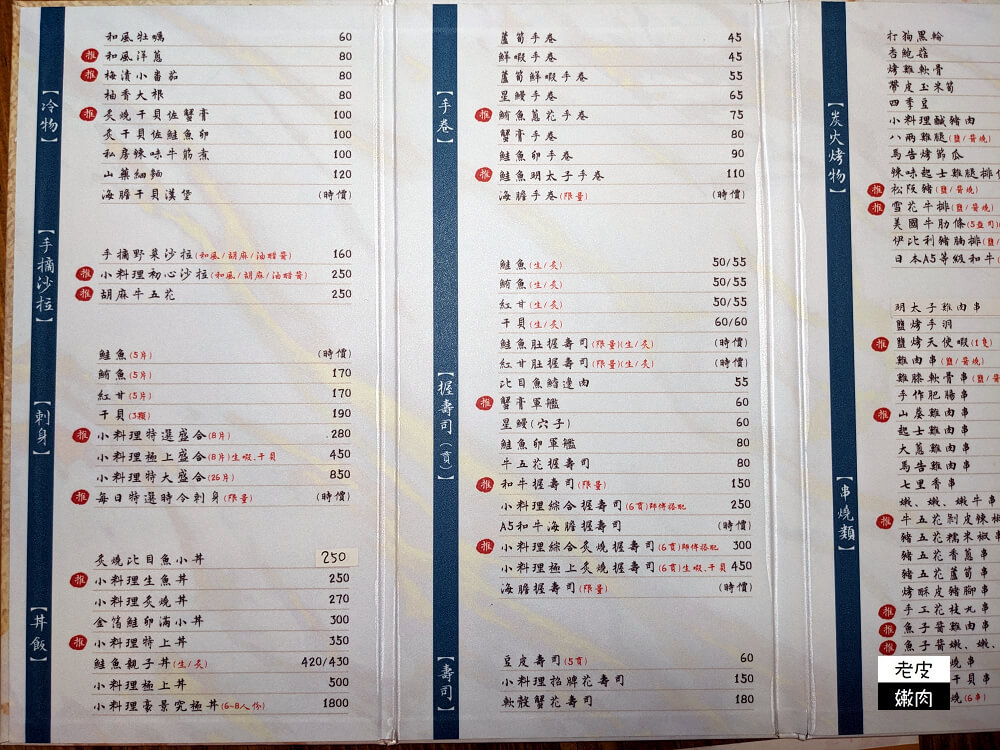 【冷物】
和風牡蠣 60
推 和風洋蔥 80
推 梅漬小番茄 80
柚香大根 80
推 炙燒干貝佐蟹膏 100
炙干貝佐鮭魚卵 100
私房辣味牛筋煮 100
山藥細麵 120
海膽干貝漢堡 (時價)
【手摘沙拉】
手摘野菜沙拉(和風/胡麻/油醋醬) 160
推 小料理初心沙拉(和風/胡麻/油醋醬) 250
推 胡麻牛五花 250
【刺身】
鮭魚(5片) (時價)
鮪魚(5片) 170
紅甘(5片) 170
干貝(3顆) 190
推 小料理特選盛合(8片) 280
小料理極上盛合(8片)生蝦、干貝 450
小料理特大盛合(26片) 850
推 每日特選時令刺身(限量) (時價)
【丼飯】
炙燒比目魚小丼 250
推 小料理生魚丼 250
小料理炙燒丼 270
金箔鮭卵滿小丼 300
推 小料理特上丼 350
鮭魚親子丼(生/炙) 420/430
小料理極上丼 500
小料理豪景究極丼(6~8人份) 1800
【手卷】
蘆筍手卷 45
鮮蝦手卷 45
蘆筍鮮蝦手卷 55
星鰻手卷 65
推 鮪魚蔥花手卷 75
蟹膏手卷 80
鮭魚卵手卷 90
推 鮭魚明太子手卷 110
海膽手卷(限量) (時價)
【握壽司(貫)】
鮭魚(生/炙) 50/55
鮪魚(生/炙) 50/55
紅甘(生/炙) 50/55
干貝(生/炙) 60/60
鮭魚肚握壽司(限量)(生/炙) (時價)
紅甘肚握壽司(限量)(生/炙) (時價)
比目魚鰭邊肉 55
推 蟹膏軍艦 60
星鰻(穴子) 60
鮭魚卵軍艦 80
牛五花握壽司 80
推 和牛握壽司(限量) 150
小料理綜合握壽司(6貫)師傅搭配 250
A5和牛海膽握壽司 (時價)
推 小料理綜合炙燒握壽司(6貫)師傅搭配 300
小料理極上炙燒握壽司(6貫)生蝦、干貝 450
海膽握壽司(限量) (時價)
【壽司】
豆皮壽司(5貫) 60
小料理招牌花壽司 150
軟殼蟹花壽司 180
【炭火烤物】
打狗黑輪
杏鮑菇
烤雞軟骨
帶皮玉米筍
四季豆
小料理鹹豬肉
八兩雞腿(鹽/醬燒)
馬告烤節瓜
辣味起士雞腿排
推 松阪豬(鹽/醬燒)
推 雪花牛排(鹽/醬燒)
美國牛肋條(5盎司)
伊比利豬腩排(鹽/
日本A5等級和牛
【串燒類】
明太子雞肉串
鹽烤手羽
推 鹽烤天使蝦(1隻)
雞肉串(鹽/醬燒)
雞膝軟骨串(鹽/
手作肥腸串
推 山葵雞肉串
起士雞肉串
大蔥雞肉串
馬告雞肉串
七里香串
嫩、嫩、嫩牛串
推 牛五花剝皮辣椒
豬五花糯米椒串
豬五花香蔥串
豬五花蘆筍串
烤酥皮豬腳串
推 手工花枝丸串
推 魚子醬雞肉串
推 魚子醬嫩、嫩、
燒串
干貝串
燒(6串)
老皮
嫩肉